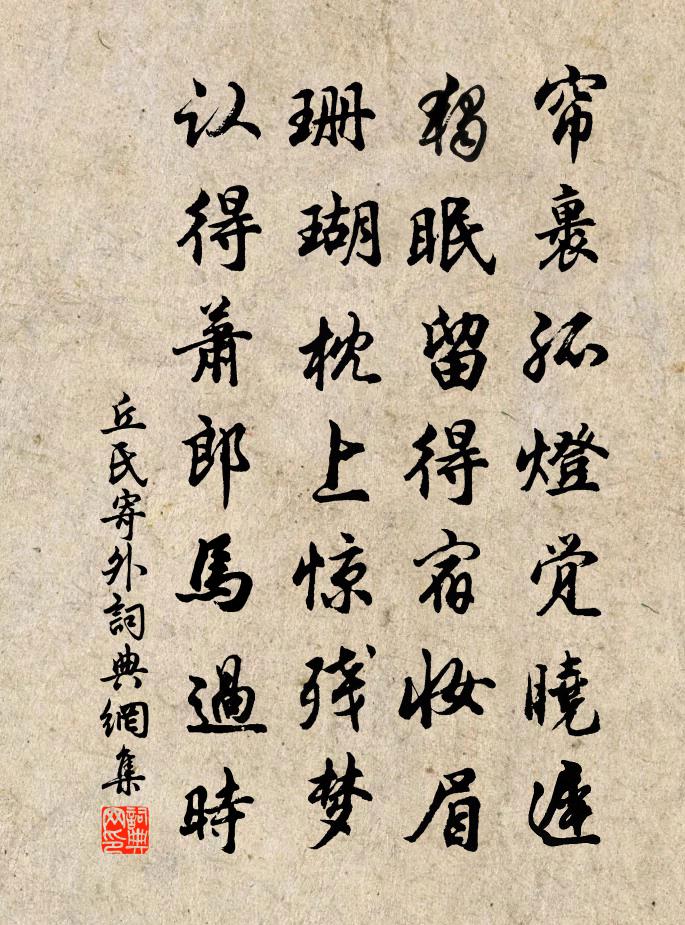 帘裏孤燈觉曉遲
獨眠留得宿妆眉
珊瑚枕上惊残梦
认得蕭郎馬過時
丘氏寄外詞典網集
詞典网印